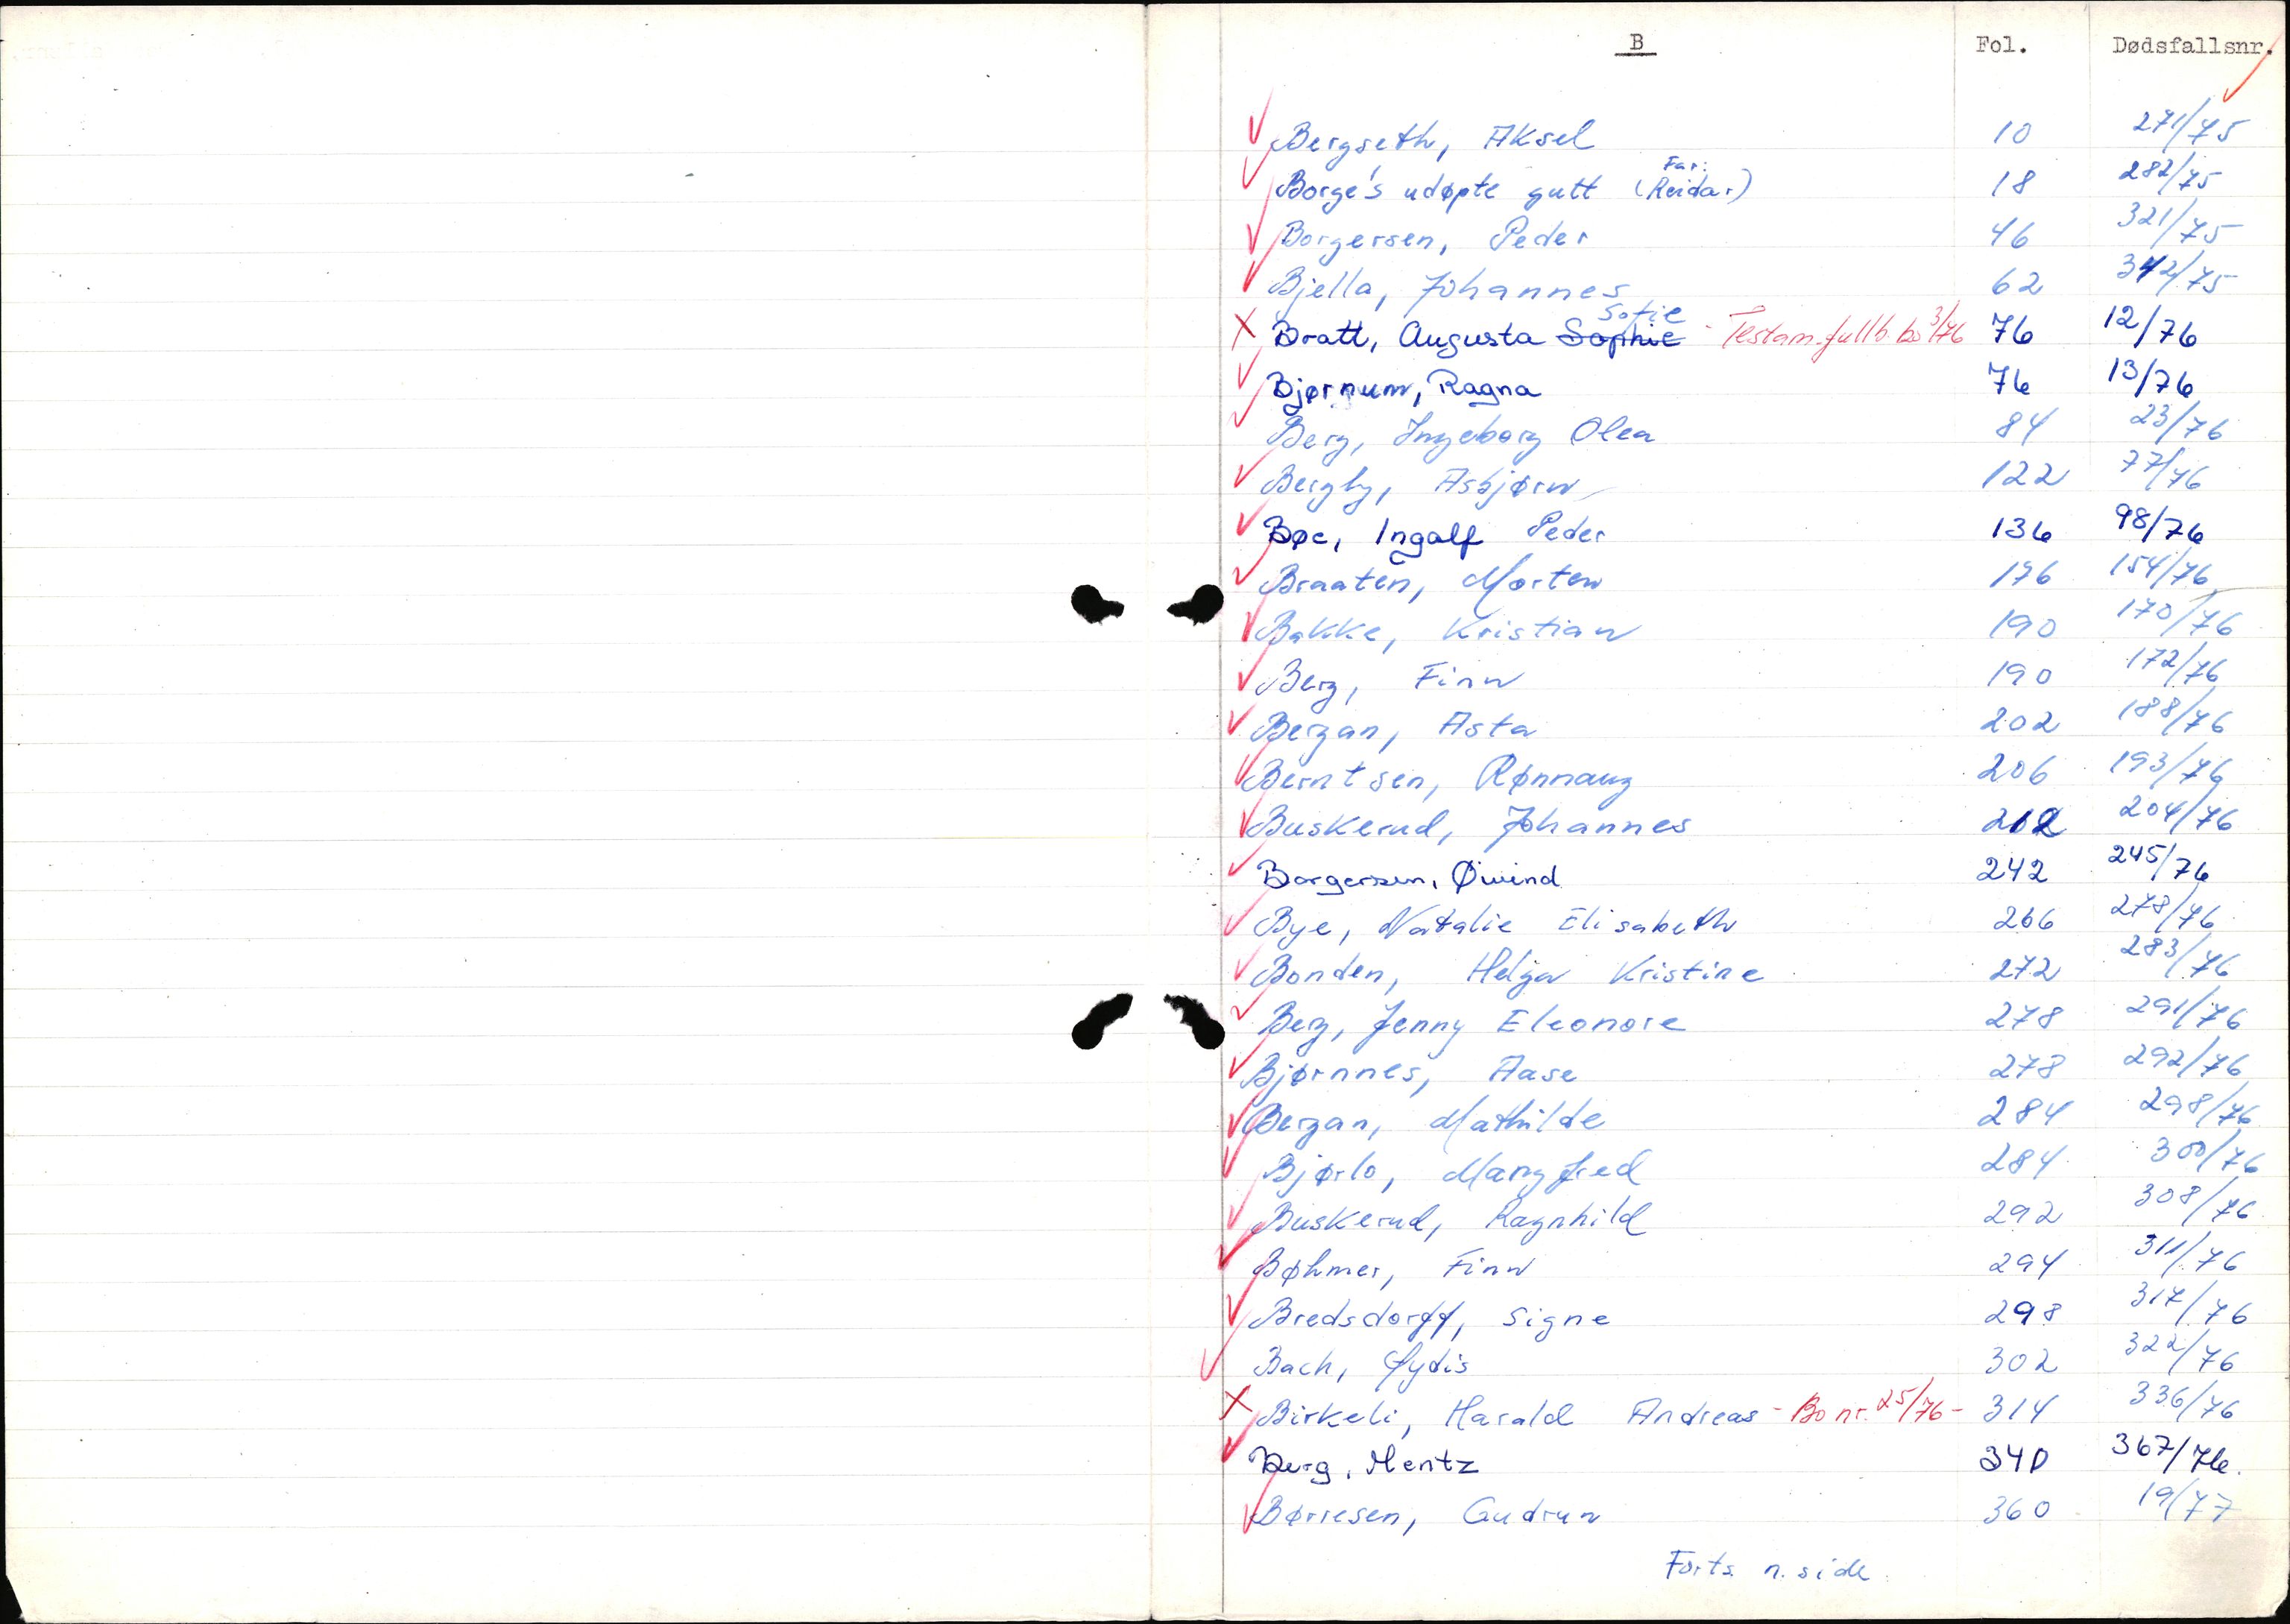 B Fol. Dødsfallsnr.
Bergseth, Aksel 10 271/75
Far:
Borge's udøpte gutt (Reidar) 18 282/75
Borgersen, Peder 46 321/75
Bjella, Johannes 62 342/75
Sofie
Bratt, Augusta Sophie - Testam.fullb. bo 3/76 76 12/76
Bjørnum, Ragna 76 13/76
Berg, Ingeborg Olea 84 23/76
Bergby, Asbjørn 122 77/76
Bøe, Ingolf Peder 136 98/76
Braaten, Morten 176 154/76
Bakke, Kristian 190 170/76
Berg, Finn 190 172/76
Bergan, Asta 202 188/76
Berntsen, Rønnaug 206 193/76
Buskerud, Johannes 212 204/76
Borgersen, Øivind 242 245/76
Bye, Natalie Elisabeth 266 278/76
Bonden, Helga Kristine 272 283/76
Berg, Jenny Eleonore 278 291/76
Bjørnnes, Aase 278 292/76
Bergan, Mathilde 284 298/76
Bjørlo, Mangfred 284 300/76
Buskerud, Ragnhild 292 308/76
Bøhmer, Finn 294 311/76
Bredsdorff, Signe 298 317/76
Bach, 302 322/76
Birkeli, Harald Andreas - Bo nr. 25/76 - 314 336/76
Berg, Mentz 340 367/76.
Børresen, Gudrun 360 19/77
Forts. n. side